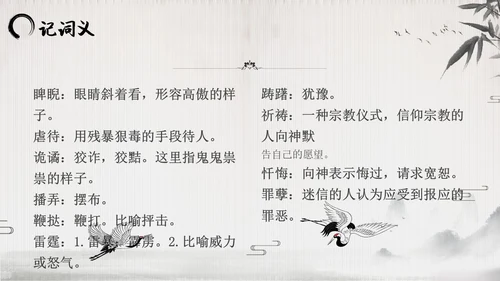 记词义
睥睨：眼睛斜着看，形容高傲的样
子。
虐待：用残暴狠毒的手段待人。
诡谲：狡诈，狡黠。这里指鬼鬼祟
祟的样子。
播弄：摆布。
鞭挞：鞭打。比喻抨击。
雷霆：1.雷暴，霹雳。2.比喻威力
或怒气。
踌躇：犹豫。
祈祷：一种宗教仪式，信仰宗教的
人向神默
告自己的愿望。
忏悔：向神表示悔过，请求宽恕。
罪孽：迷信的人认为应受到报应的
罪恶。